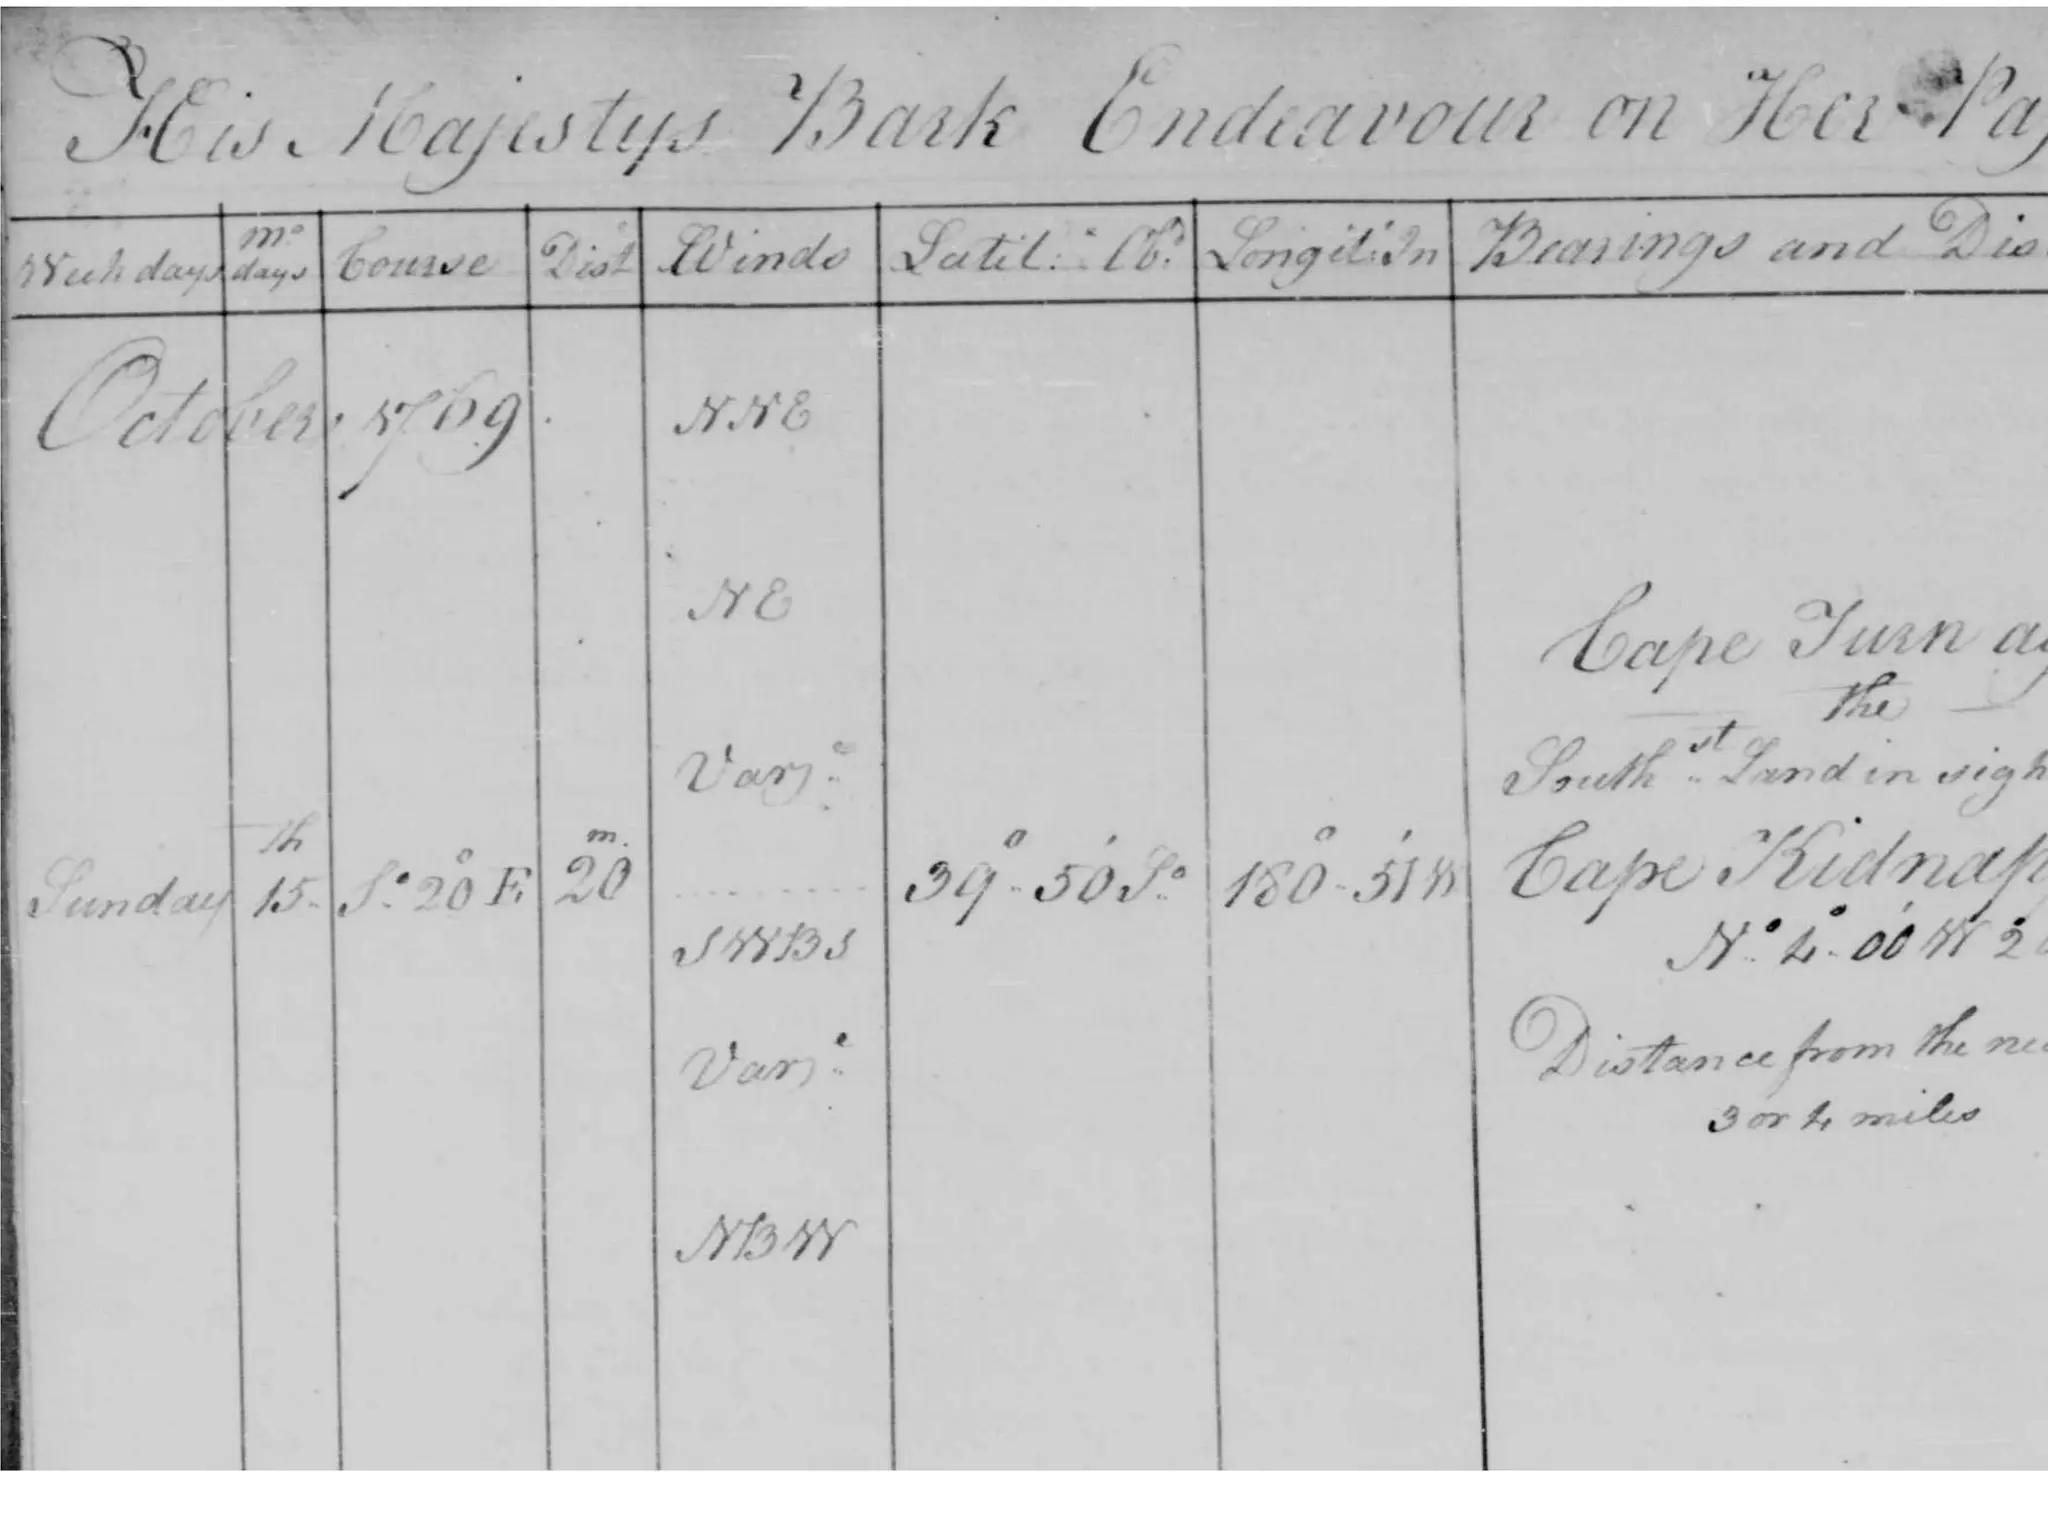 His Majestys Bark Endeavour on Her Pas
Week days m.o days Course Dist Winds Latit.e Ob.d Longit.e In Bearings and Dis
October 1769. NNE
NE
Cape Turn ag
the
Var.e South.st Land in sigh
Sunday 15.th S.o 20° E 20 m. 39°. 50' S.o 180°. 51' W Cape Kidnap
SWBS N.o 4°. 00' W 2
Var.e Distance from the nea
3 or 4 miles
NBW